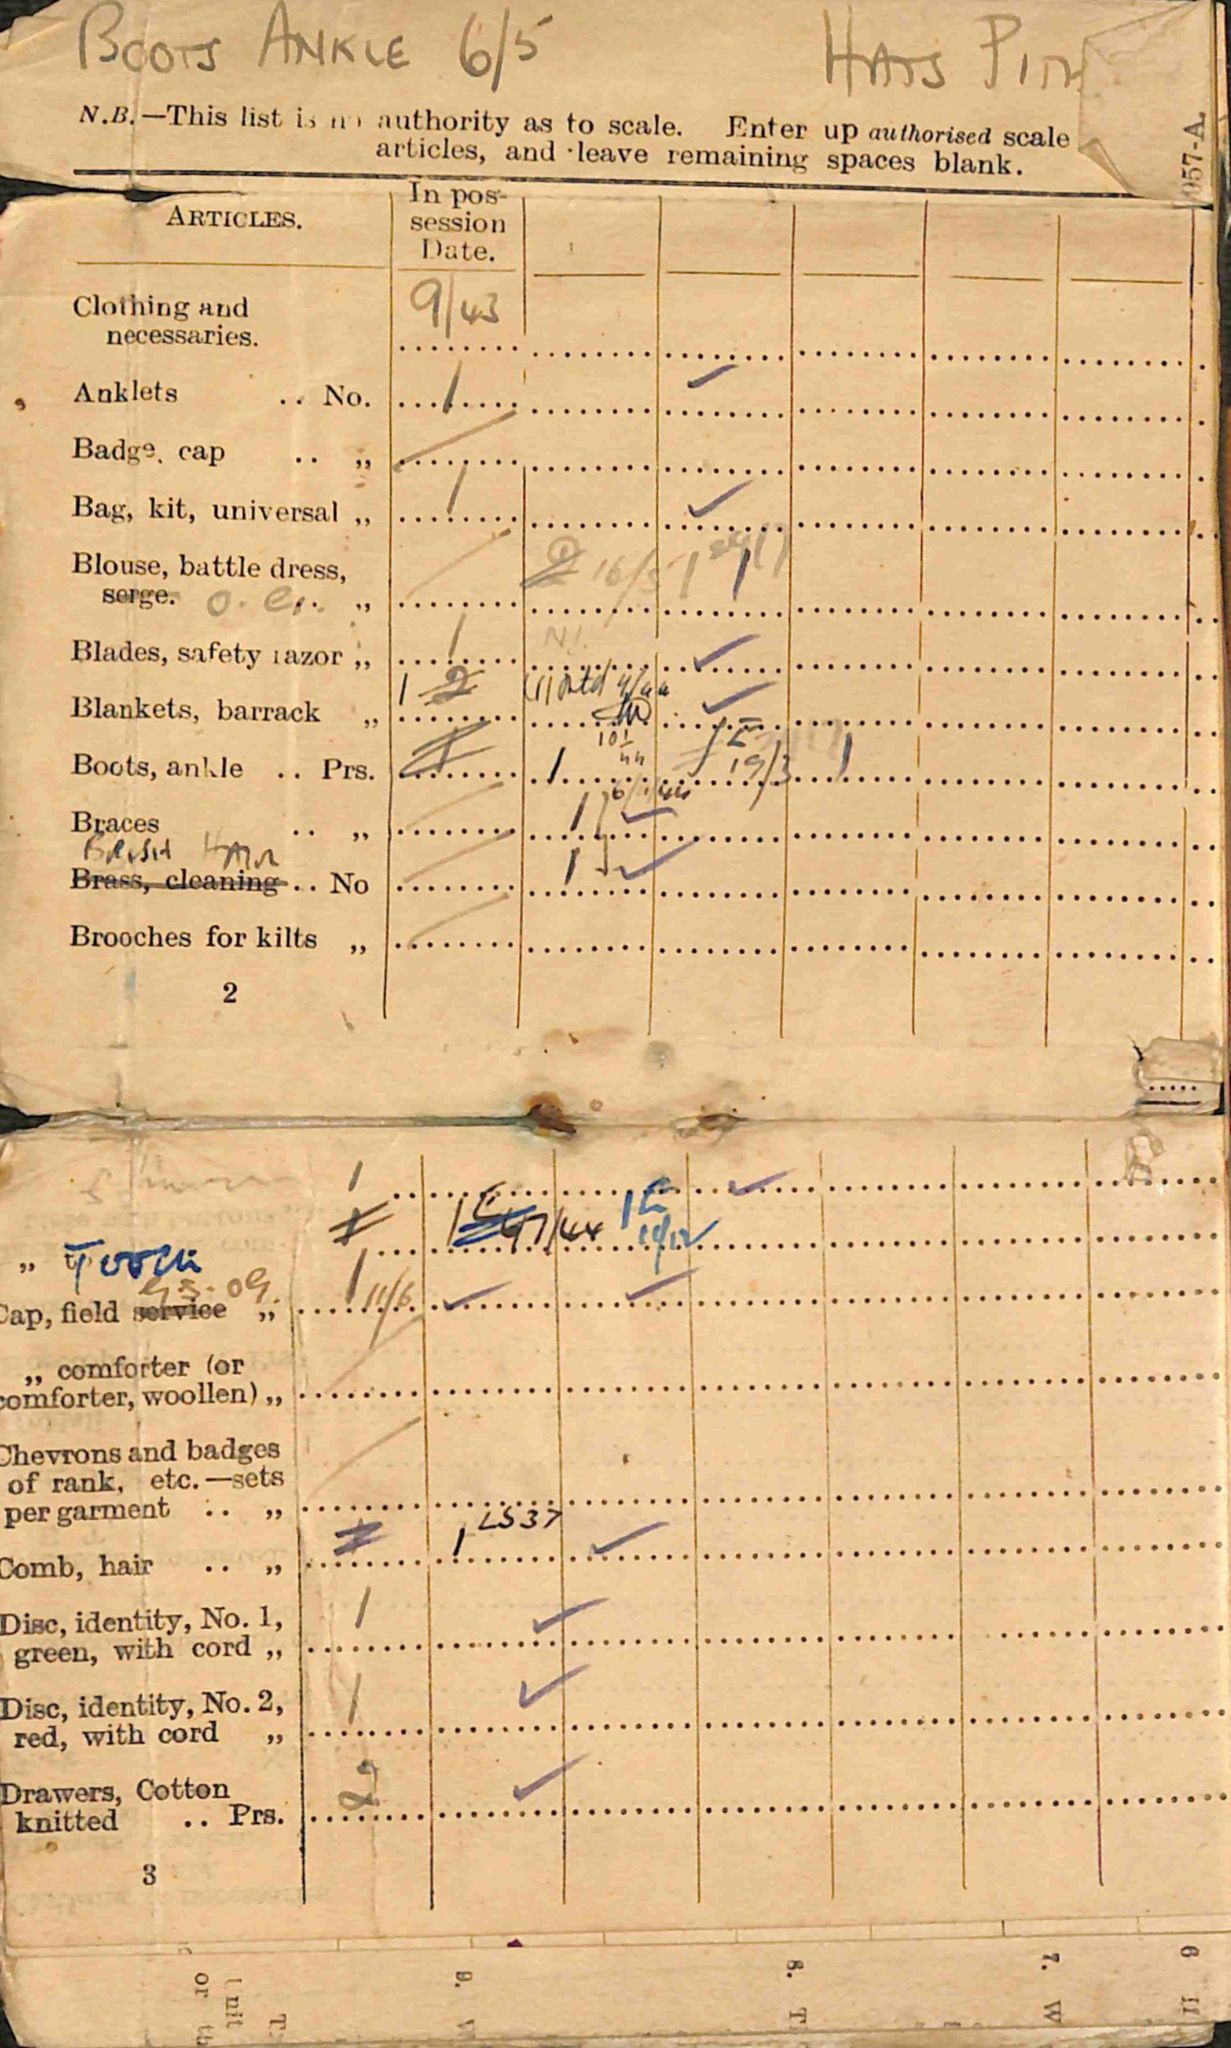 BOOTS ANKLE 6/5 HATS
N.B.—This list is no authority as to scale. Enter up authorised scale
articles, and leave remaining spaces blank.
057-A.
ARTICLES. In pos-
session
Date.
Clothing and
necessaries. 9/43
Anklets .. No. 1 ✓
Badge, cap .. „
Bag, kit, universal „ 1 ✓
Blouse, battle dress,
serge. „ 16/5 1
Blades, safety razor „ 1 ✓
Blankets, barrack „ 1 2 ✓
Boots, ankle .. Prs. 1 1 19/3 1
Braces .. „ 1 ✓
BRUSH HAIR
Brass, cleaning .. No 1 ✓
Brooches for kilts „
2
1 ✓
„ TOOTH 1 1 /44 1
Cap, field service „ 1 11/6 ✓ ✓
„ comforter (or
comforter, woollen) „
Chevrons and badges
of rank, etc.—sets
per garment .. „
Comb, hair .. „ 1 1 LS37 ✓
Disc, identity, No. 1,
green, with cord „ 1 ✓
Disc, identity, No. 2,
red, with cord „ 1 ✓
Drawers, Cotton
knitted .. Prs. 2 ✓
3
9. 8. 7. 6
Unit
or